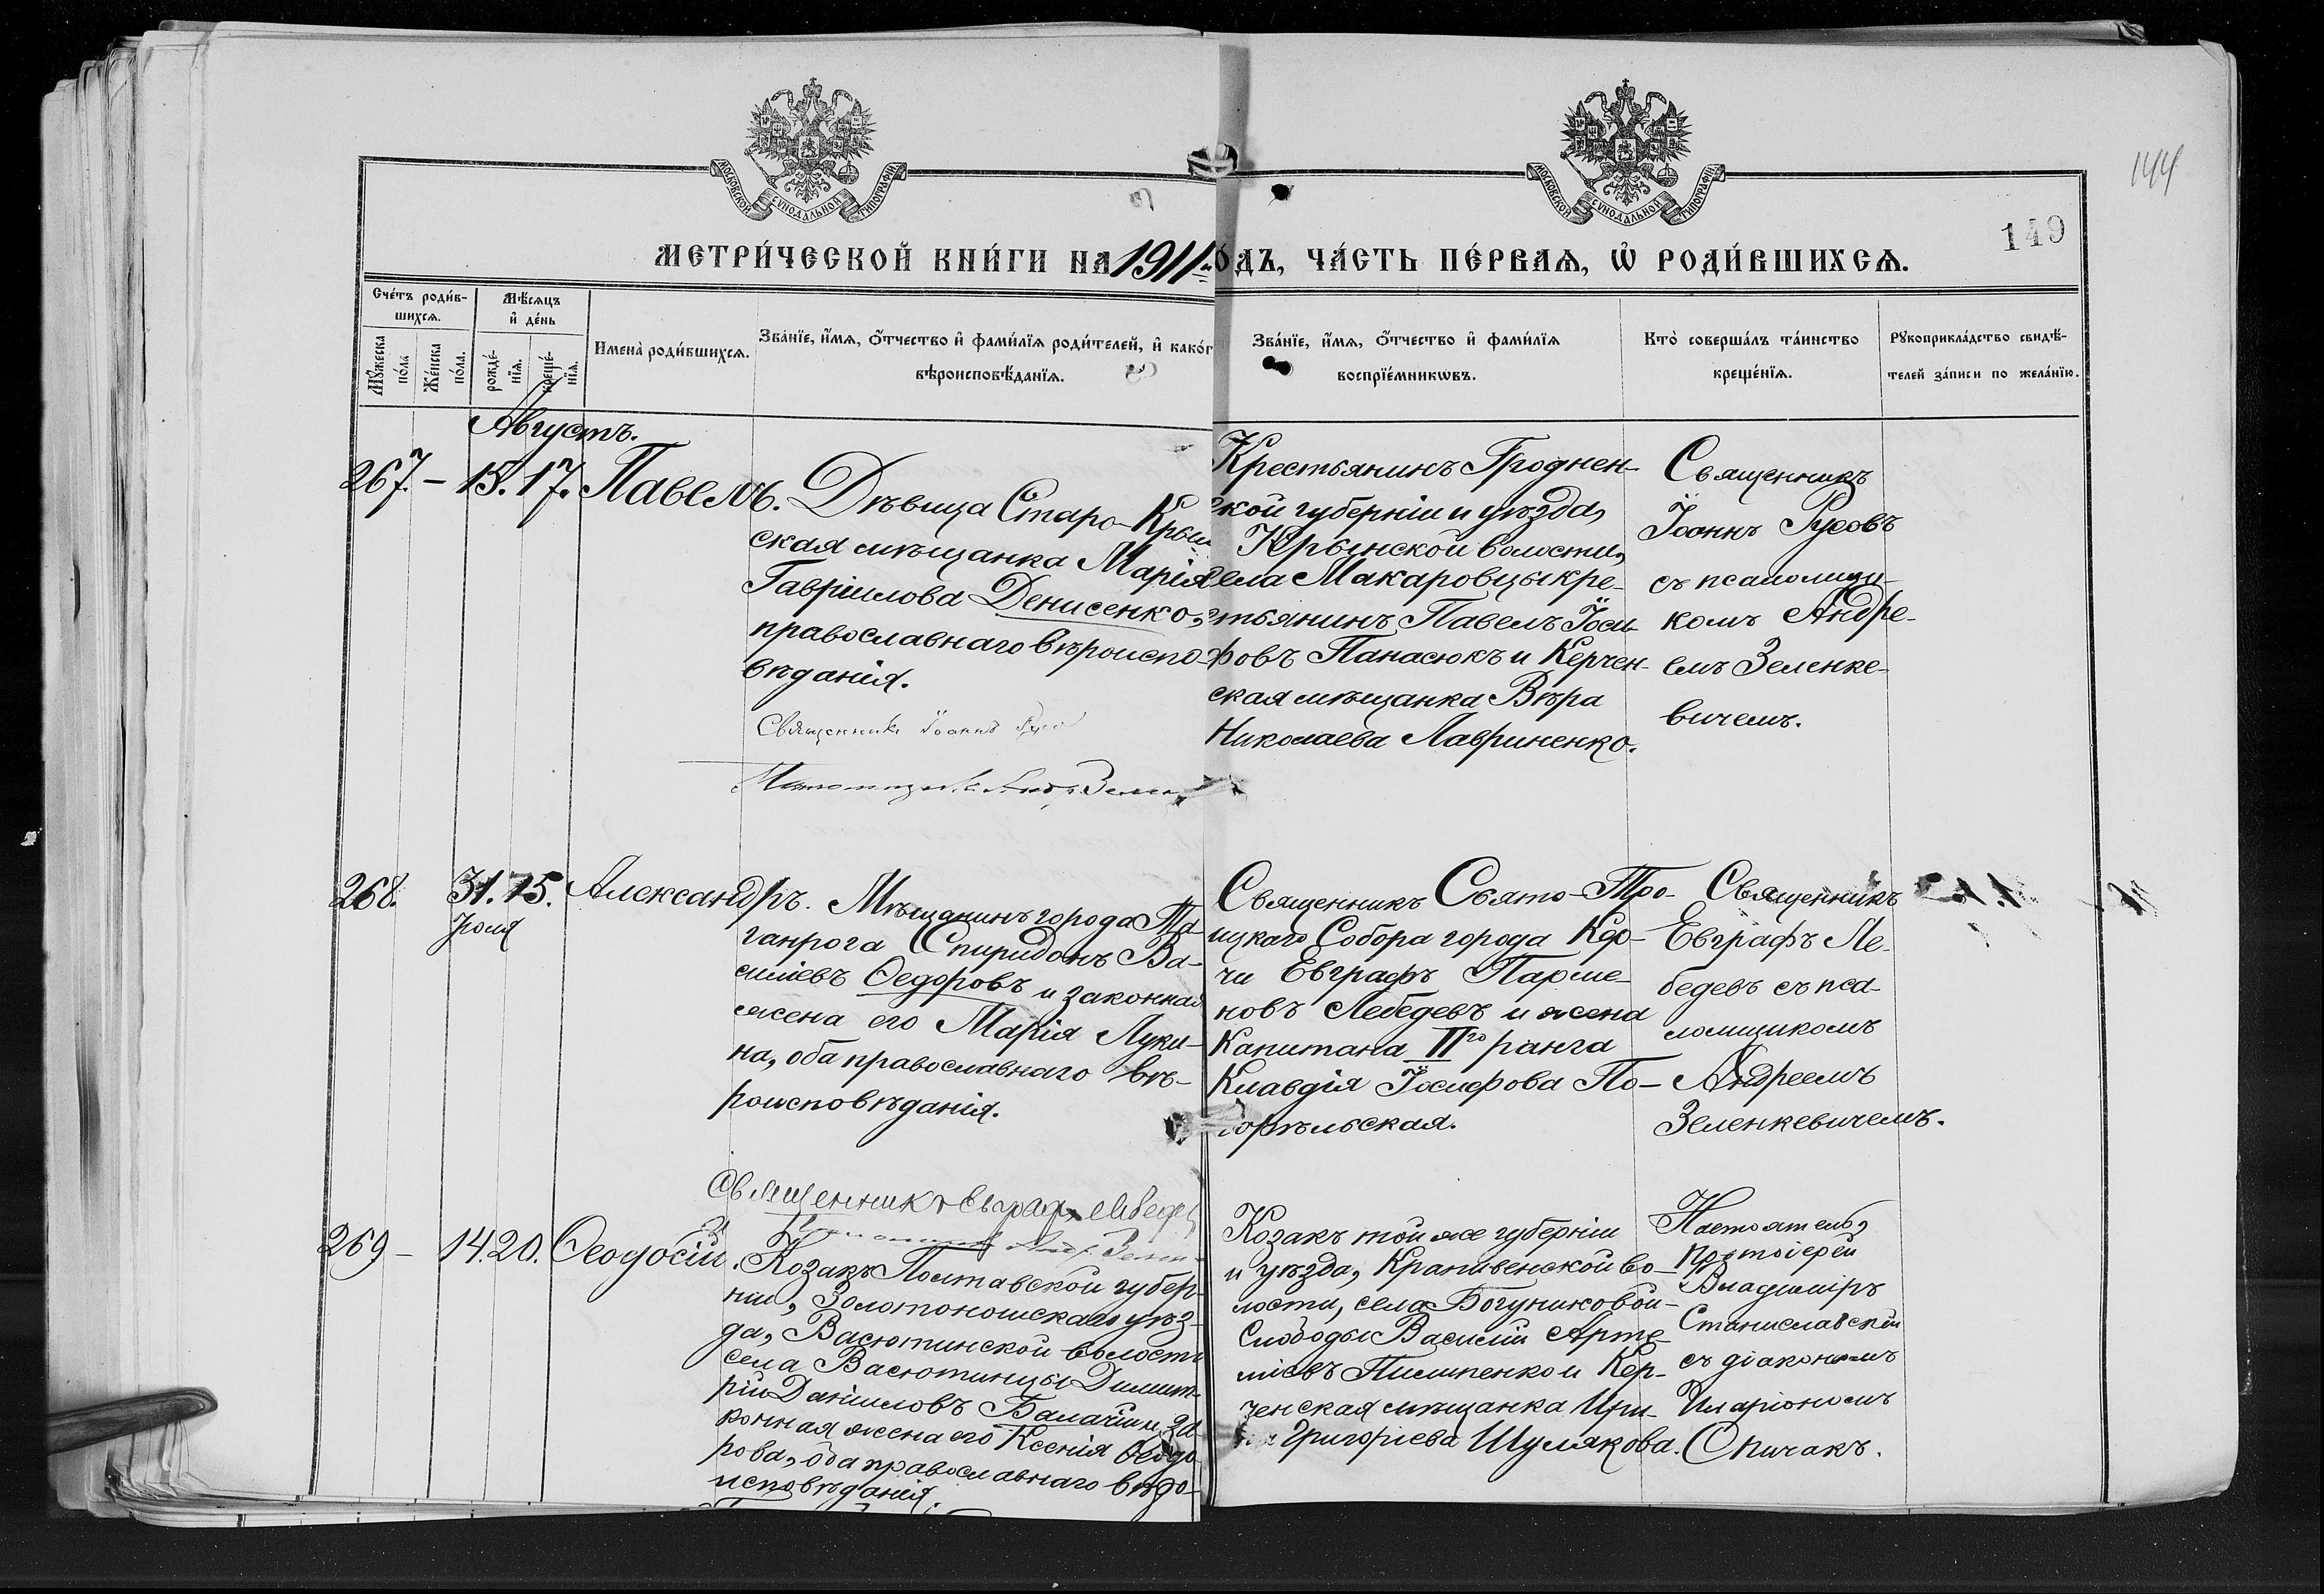 144
149
МОСКОВСКОЙ СѴНОДАЛЬНОЙ ТИПОГРАФІИ
МОСКОВСКОЙ СѴНОДАЛЬНОЙ ТИПОГРАФІИ
МЕТРИ́ЧЕСКОЙ КНИ́ГИ НА 1911 ОДЪ, ЧА́СТЬ ПЕ́РВАѦ, Ѡ҆ РОДИ́ВШИХСѦ.
Сче́тъ роди́в-
шихсѧ.
Мꙋ́жеска по́ла
Же́нска по́ла.
Мѣ́сѧцъ и҆ де́нь
рожде́-нїѧ.
креще́-нїѧ.
Имена̀ роди́вшихсѧ.
Зва́нїе, и҆́мѧ, ѻ҆́тчество и҆ фами́лїѧ роди́телей, и҆ како́г
вѣроисповѣ́данїѧ.
Зва́нїе, и҆́мѧ, ѻ҆́тчество и҆ фами́лїѧ
воспрїе́мникѡвъ.
Кто̀ соверша́лъ та́инство
креще́нїѧ.
Рꙋкоприкла́дство свидѣ́-
телей за́писи по жела́нїю.
Августъ.
267. – 15. 17. Павелъ.
Дѣвица Старо-Крым
ская мѣщанка Марія
Гавріилова Денисенко,
православнаго вѣроиспо-
вѣданія.
Священникъ Іоаннъ
Крестьянинъ Гроднен-
ской губерніи и уѣзда,
Крынской волости,
села Макаровцы кре-
стьянинъ Павелъ Іоси-
фовъ Панасюкъ и Керчен-
ская мѣщанка Вѣра
Николаева Лавриненко.
Священникъ
Іоаннъ Русовъ
съ псаломщи-
комъ Андре-
емъ Зеленке-
вичемъ.
268. 31. 15. Александръ.
Іюля
Мѣщанинъ города Та
ганрога Спиридонъ Ва-
силіевъ Ѳедоровъ и законная
жена его Марія Луки-
на, оба православнаго вѣ-
роисповѣданія.
Священникъ Евграфъ Лебедев
Священникъ Свято-Тро-
ицкаго Собора города Кер-
чи Евграфъ Парме-
новъ Лебедевъ и жена
Капитана II го ранга
Клавдія Іосифова По-
горѣльская.
Священникъ
Евграфъ Ле-
бедевъ съ пса-
ломщикомъ
Андреемъ
Зеленкевичемъ.
269 – 14. 20. Ѳеодосій.
Козакъ Полтавской губер-
ніи, Золотоношскаго уѣз-
да, Васютинской волости
села Васютинцы Димит-
рій Даніиловъ Балачій и за
конная жена его Ксенія Ѳеодо
рова, оба православнаго вѣро-
исповѣданія.
Козакъ той же губерніи
и уѣзда, Крапивенской во-
лости, села Богуниковой-
Слободы Василій Арте-
міевъ Пилипенко и Кер-
ченская мѣщанка Ири-
на Григорьева Шулякова.
Настоятель,
Протоіерей
Владиміръ
Станиславскій
съ діакономъ
Иларіономъ
Спичакъ.